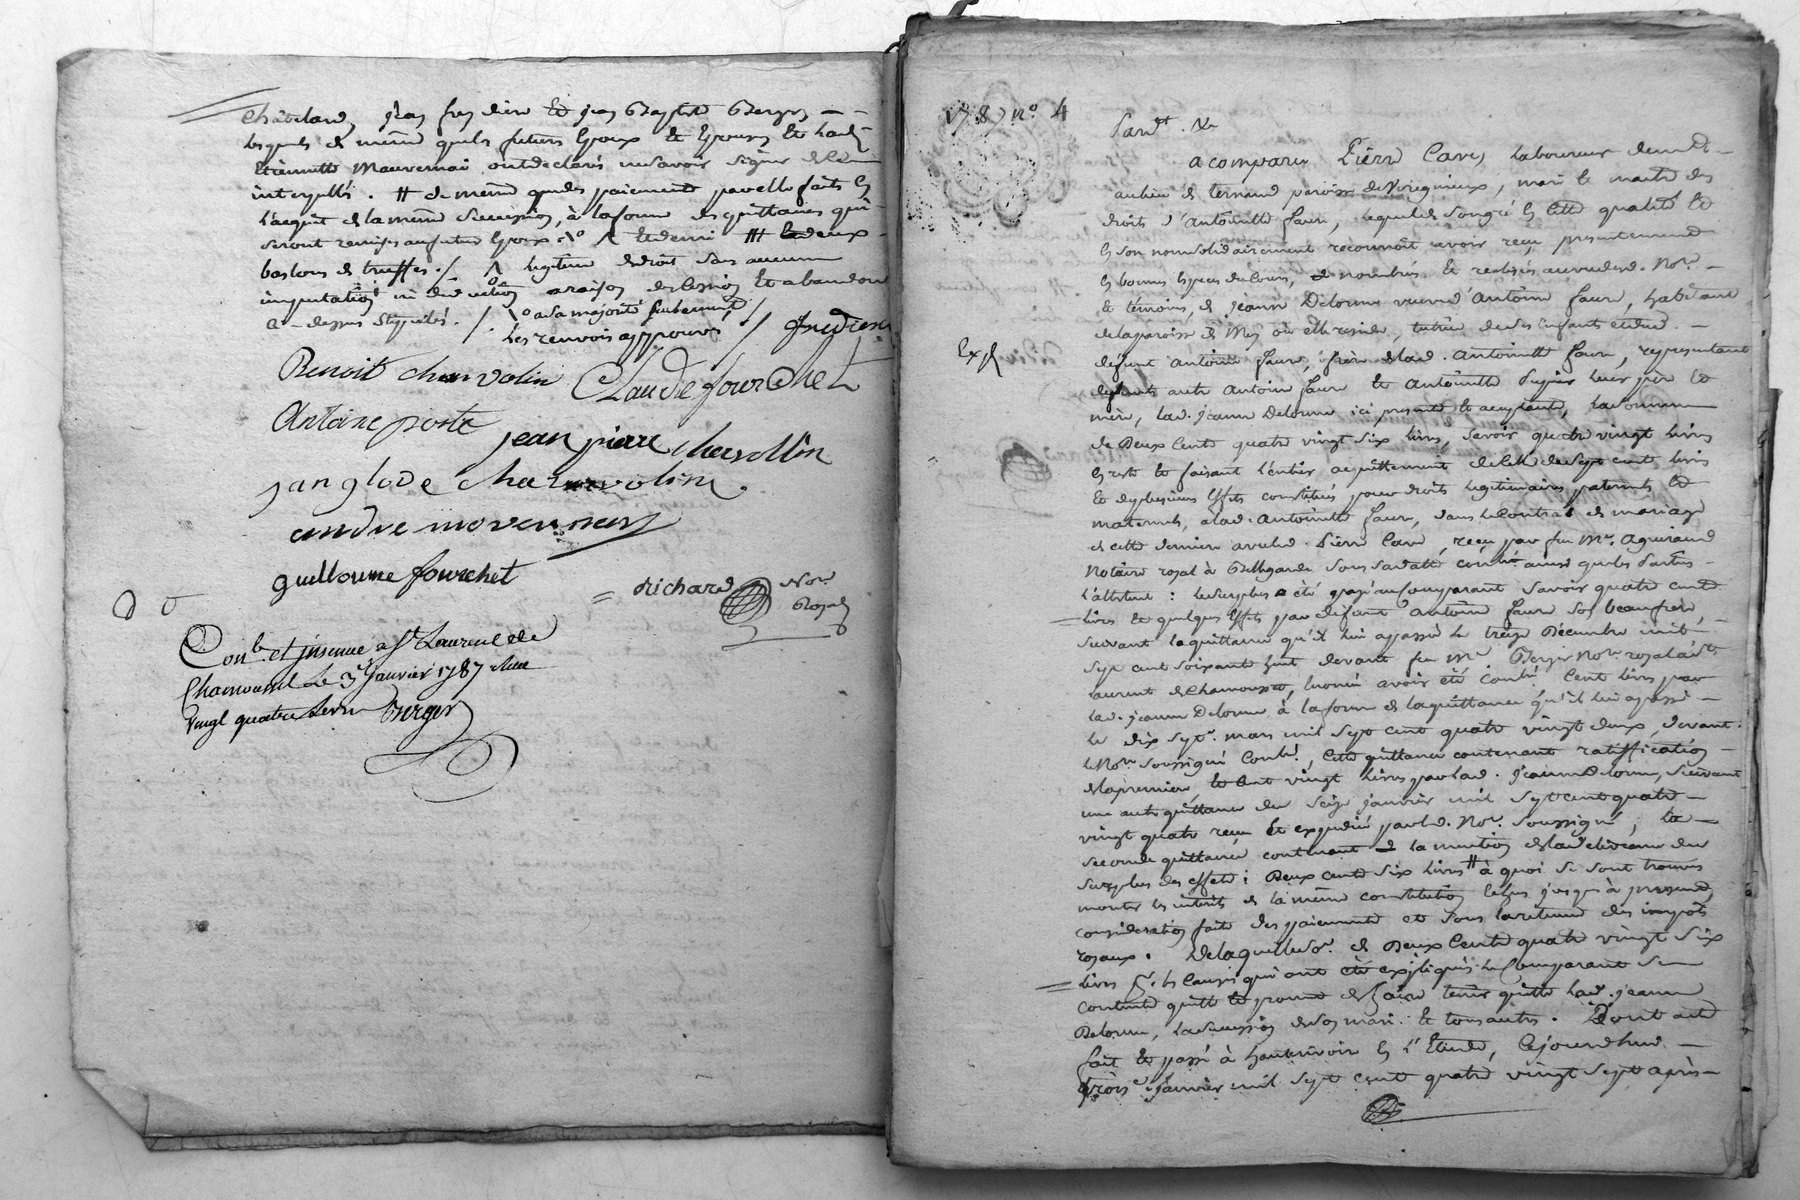 Châtelard, jean fredière et jean Baptiste Berger
lesquels de même que les futurs Epoux et Epouse et lad.
Etiennette Mauvernai ont declarés ne savoir signer de ce
interpellés. # de même que les paiements par elle faits en
l'acquit de la même succession, à la forme des quittances qui
seront remises au futur Epoux et demi deux
bastons de truffes. légitime de droit sans aucune
imputation ni deduction a raison de cession et abandon
ci-dessus stipulés. à sa majorité seulement
les renvois approuvés
Benoit charvolin Claude fourchet
Antoine poste
jean piere charvollin
jan glode charvolin
andre movernay
guilloume fourchet
Richard Nore
Royal
Conlé et insinué a St Laurent de
Chamousset le 3 janvier 1787 Reçu
vingt quatre livres Berger
1787 n° 4
Pardt. &c
a comparu Pierre Cave, laboureur demt
au lieu de Ternand paroisse de Virigneux, mari et maitre des
droits d'Antoinette faure, lequel de son gré en cette qualité et
en son nom solidairement reconnoit avoir reçu presentement
en bonnes especes de cours, nombrés et realisés au vu desd. Nore
et témoins, de jeanne Delorme veuve d'Antoine faure, habitant
de la paroisse de Mes où elle reside, tutrice de ses enfants et dud.
Exp.
défunt Antoine faure, frère de lad. Antoinette faure, representant
défunts autre Antoine faure et Antoinette Dupier leurs père et
mère, lad. jeanne Delorme ici presente et acceptante, la somme
de Deux cents quatre vingt six livres, savoir quatre vingt livres
en reste et faisant l'entier acquittement de celle de sept cents livres
et de plusieurs effets constitués pour droits legitimaires paternels et
maternels, a lad. Antoinette faure, dans le Contrat de mariage
de cette derniere avec led. Pierre Cave, reçu par feu Me. Aguiraud
Notaire royal à Bellegarde sous sa datte conlé ainsi que les Parties
l'attestent : le surplus a été payé au comparant savoir quatre cents
livres et quelques effets par défunt Antoine faure son beaufrère,
suivant la quittance qu'il lui a passé le treize Décembre mil
sept cent soixante huit devant feu Me. Berger Nore. royal à St
Laurent de Chamousset, enoncé avoir été conlé, cent livres par
lad. jeanne Delorme à la forme de la quittance qu'il lui a passé
le dix sept. mars mil sept cent quatre vingt deux, devant
le Nore soussigné Conlé., cette quittance contenant ratification
de la premiere, et cent vingt livres par lad. jeanne Delorme, suivant
une autre quittance du seize janvier mil sept cent quatre
vingt quatre reçu et expedié par led. Nore. soussigné, la
seconde quittance contenant la mention de la délivrance du
surplus des effets : Deux cents six livres # à quoi se sont trouvés
monter les intérêts de la même constitution echus jusqu'à present,
consideration faite des paiements et sous la retenue des impôts
royaux. De laquelle so. de Deux cents quatre vingt six
livres p. les causes qui ont été expliquées le Comparant se
contente quitte et promet de faire tenir quitte lad. jeanne
Delorme, la succession de son mari et tous autres. Dont acte
fait et passé à hauterivoire en l'Etude, cejourd'hui
trois janvier mil sept cent quatre vingt sept après